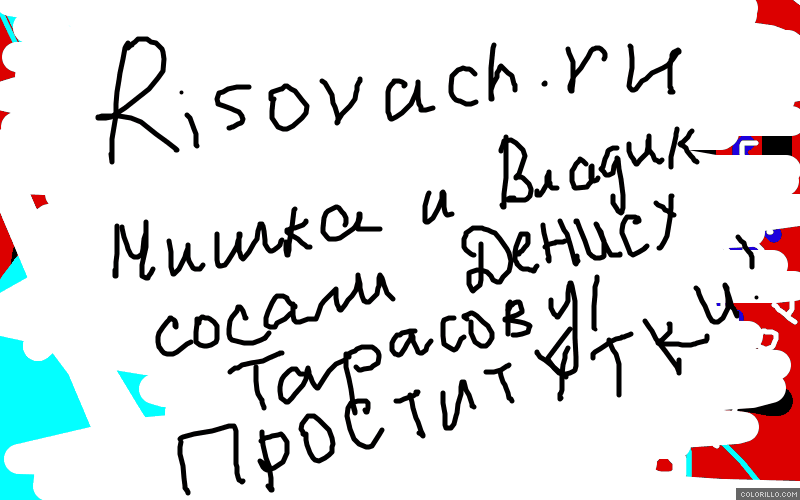 Risovach.ru
Мишка и Владик
сосали Денису
Тарасову!
Проститутки.
COLORILLO.COM